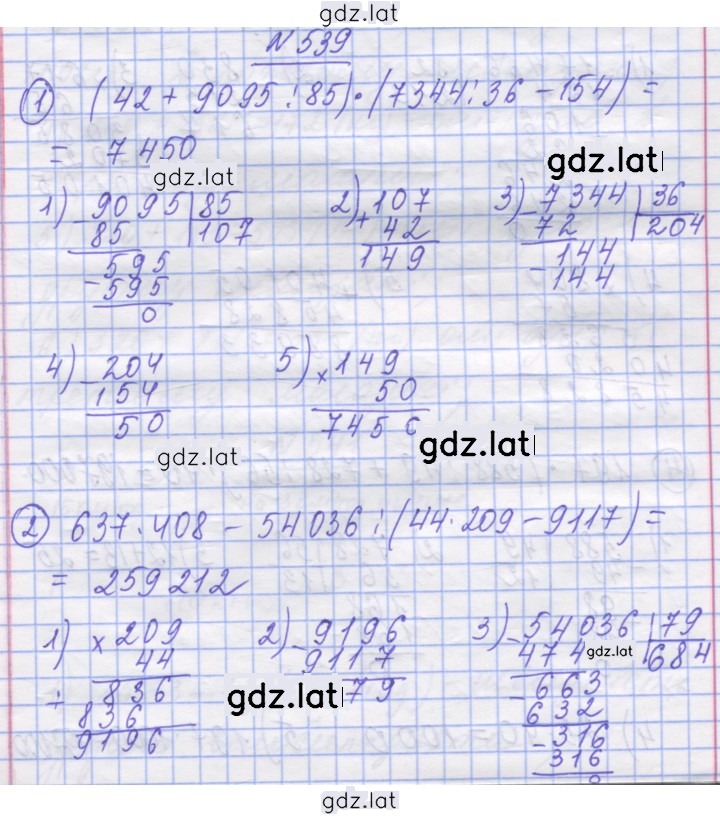 gdz.lat
N 539
1 (42 + 9095 : 85) · (7344 : 36 - 154) =
= 7450
gdz.lat
gdz.lat
1) 9095 | 85
- 85 | 107
595
- 595
0
2) 107
+ 42
149
3) 7344 | 36
- 72 | 204
144
- 144
4) 204
- 154
50
5) 149
× 50
7450
gdz.lat
gdz.lat
2 637 · 408 - 54036 : (44 · 209 - 9117) =
= 259212
1) 209
× 44
836
+ 836
9196
2) 9196
- 9117
79
gdz.lat
3) 54036 | 79
- 474 | 684
gdz.lat
663
- 632
316
- 316
0
gdz.lat